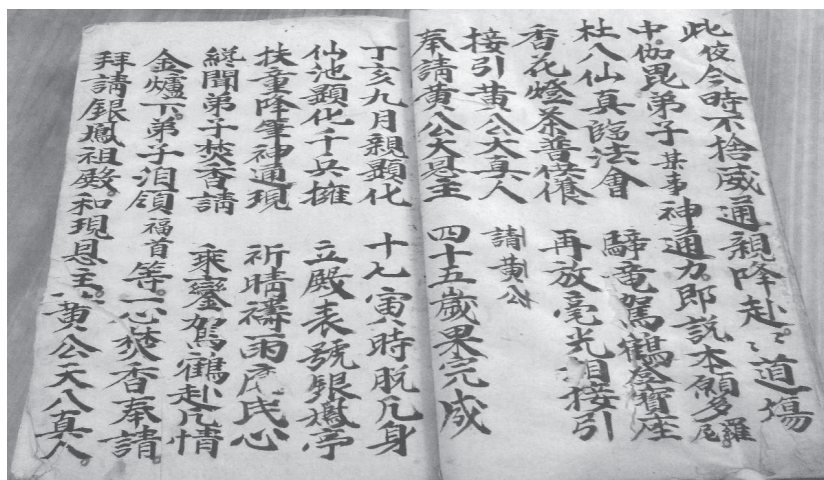 此夜今時不捨威通親降赴〻道場
中伽毘弟子某事神通力郎説本願多羅尼
杜八仙真臨法會 騎竜駕鶴登寶座
香花燈茶普供養 再放毫光相接引
接引黄公大真人 請黄公
奉請黄八公大恩主 四十五歲果完成
丁亥九月親顕化 十七寅時脱凡身
仙池顕化千兵擁 立殿表號銀鳳亭
扶童降筆神通現 祈晴禱雨庶民心
総聞弟子焚香請 乘鸞駕鶴赴凡情
金爐下弟子洎領福首等一心焚香奉請
拜請銀鳳祖殿和現恩主黄公天八真人